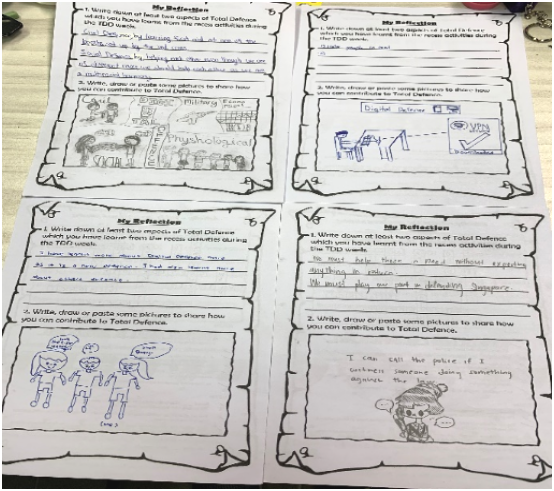 My Reflection
1. Write down at least two aspects of Total Defence
which you have learnt from the recess activities during
the TDD week.
Civil Defence by learning first aid at one of the
booths set up by the red cross.
Social Defence by helping each other even though we are
of different races we should help each other as we are
a multiracial
2. Write, draw or paste some pictures to share how
you can contribute to Total Defence.
Civil
Military
Social
Physhological
My Reflection
1. Write down at least two aspects of Total Defence
which you have learnt from the recess activities during
the TDD week.
2. Write, draw or paste some pictures to share how
you can contribute to Total Defence.
Digital Defense
VPN
My Reflection
1. Write down at least two aspects of Total Defence
which you have learnt from the recess activities during
the TDD week.
I have learnt more about Digital Defence
as it is a new I had also learnt more
about
2. Write, draw or paste some pictures to share how
you can contribute to Total Defence.
(me)
My Reflection
1. Write down at least two aspects of Total Defence
which you have learnt from the recess activities during
the TDD week.
We must help those in need without expecting
anything in return.
We must play our part in defending Singapore.
2. Write, draw or paste some pictures to share how
you can contribute to Total Defence.
I can call the police if I
witness someone doing something
against the law.